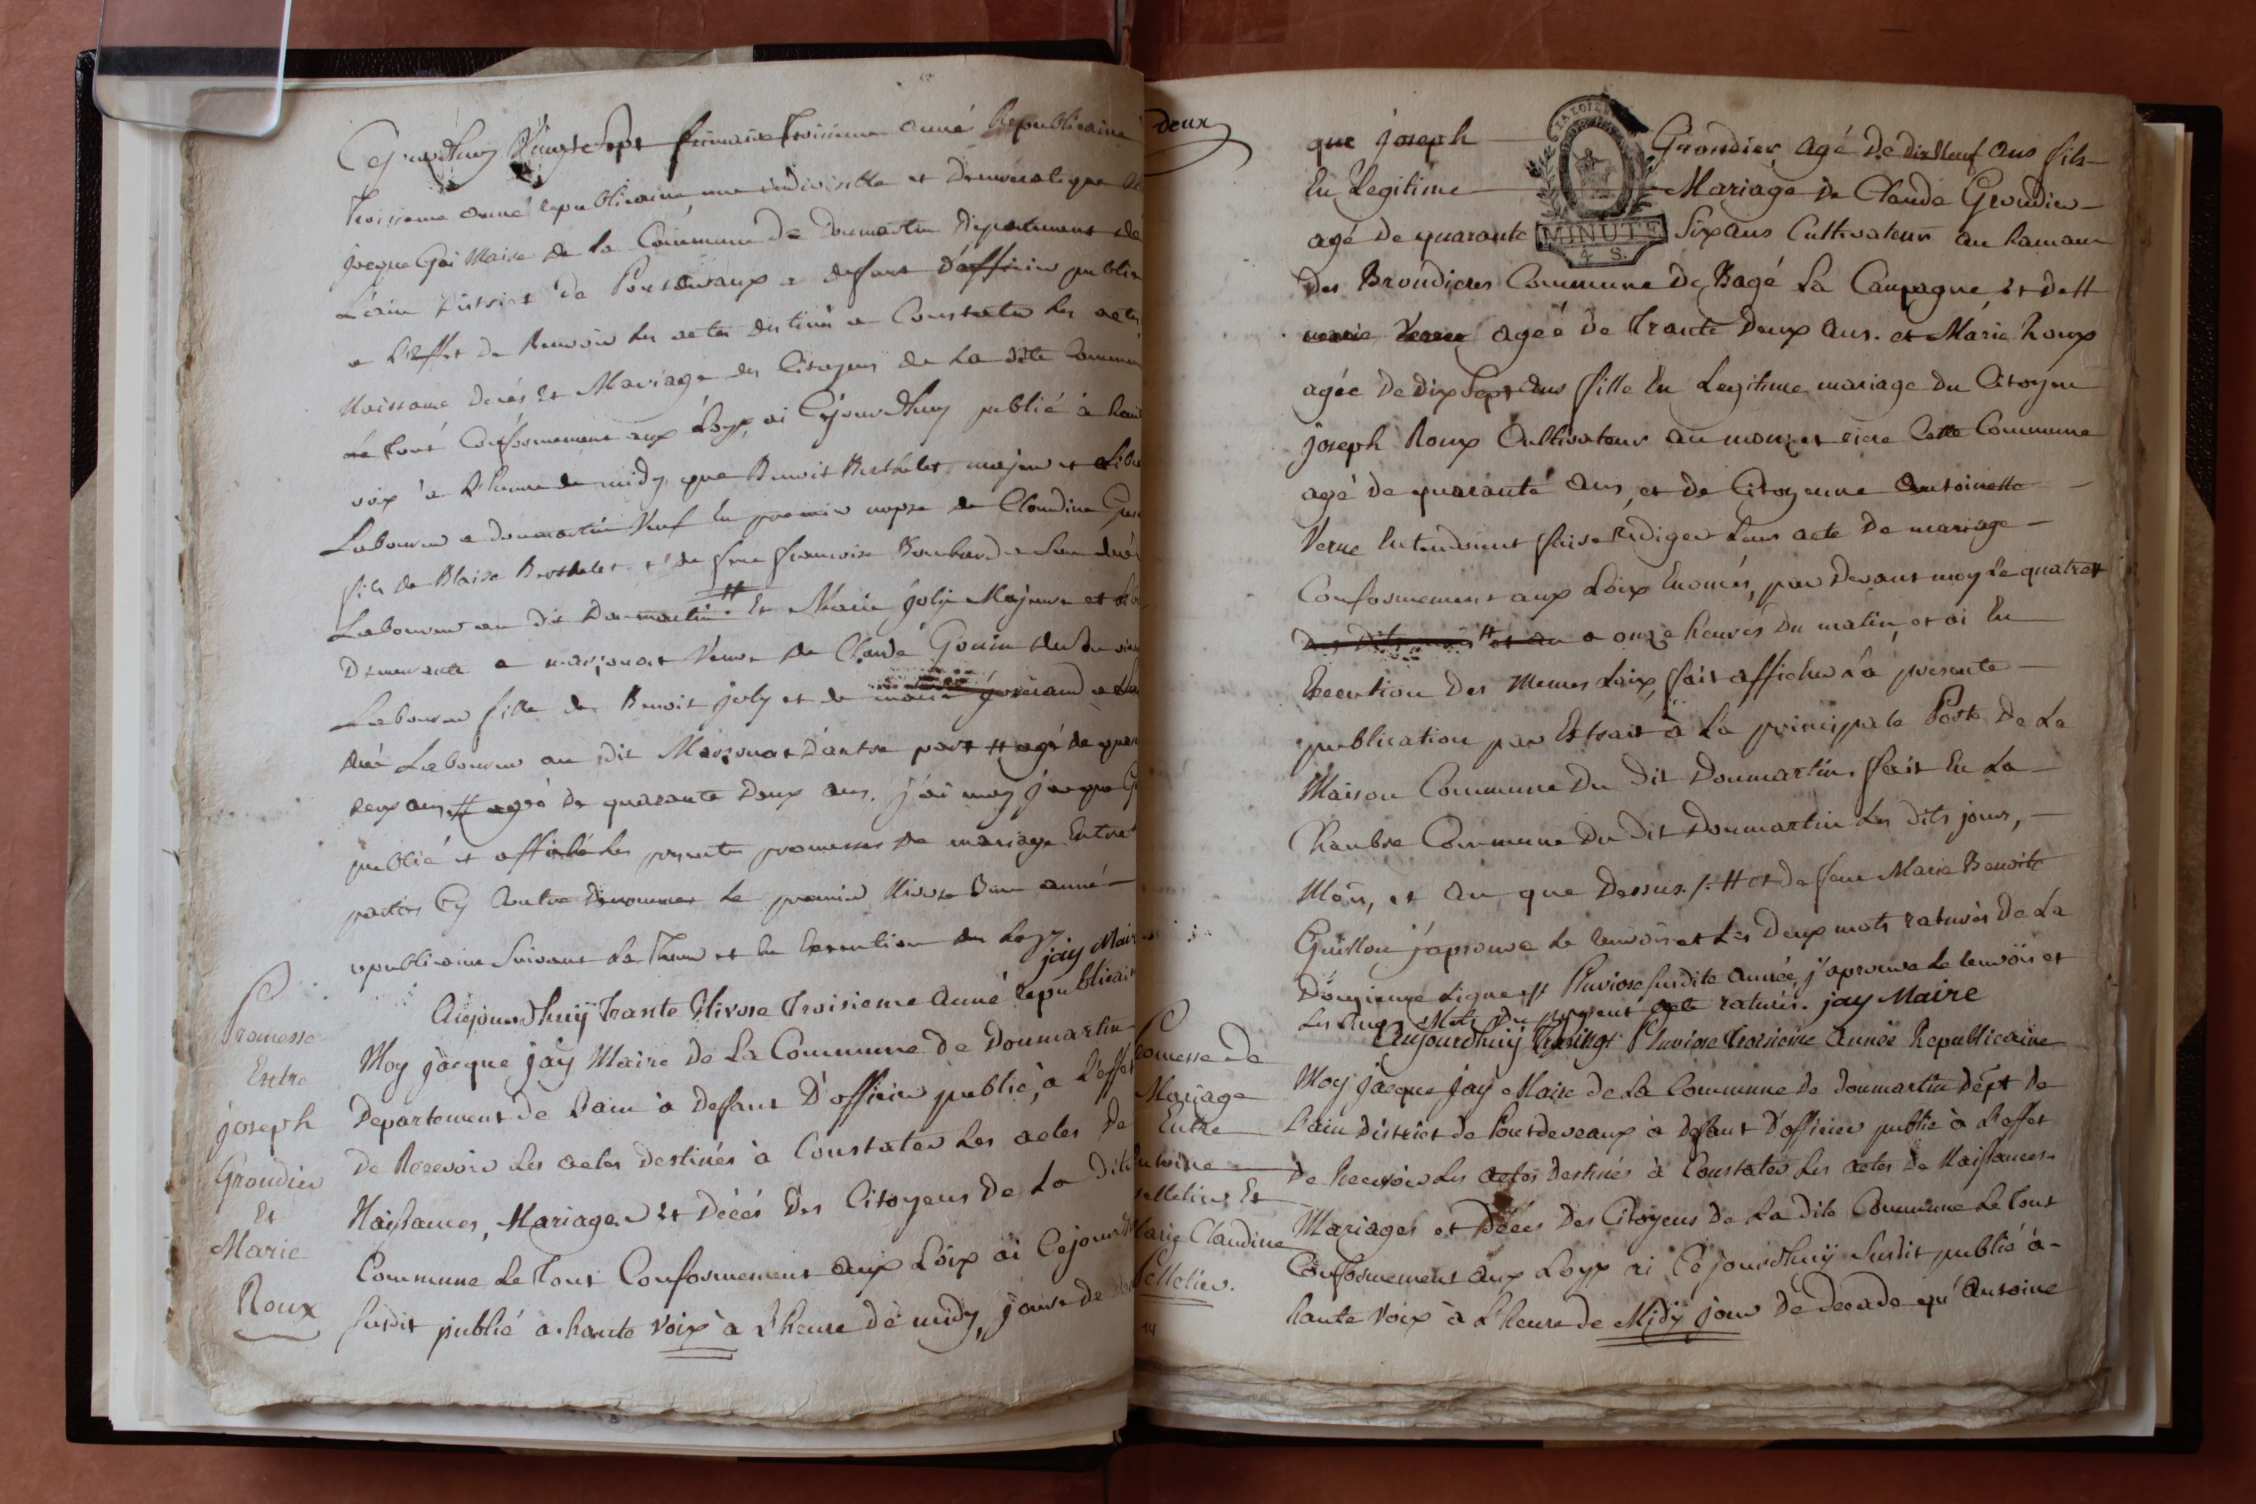 Cejourdhuy Vingt Sept frimaire Troisieme anné Republicaine
Troisieme anné republicaine, une indivisible et Democratique
jacque jai Maire de La Commune De Domartin Departement de
L'ain District de Pontdevaux a defaut d'officier public
a L'effet de Recevoir les actes destinés a Constater les actes
Naissance Decés Et Mariage des Citoyens de La dite Commune
Le tout Conformement aux Loyx, ai Cejourdhuy publié à haute
voix a L'heure de midy, que Benoit Berthelet majeur et
Laboureur a domartin Veuf En premier nopse de Claudine
fils de Blaise Berthelet et de feue francoise Bombard
Laboureur au dit Domartin # Et Marie joly Majeure et
Demeurante a marsonat Veuve de Claude Gonin
Laboureur fille de Benoit joly et de
Laboureur au dit Marsonat D'autre part # agé de
deux ans # agé de quarante Deux ans. j'ai moy jacque
publié et affiché Les presente promesses de mariage Entre
parties Cy Contre denommes le premier Nivose 3me anné
republicaine Suivant La Teneur et En Execution des Loyx.
jay Maire
Promesse
Entre
joseph
Grondier
Et
Marie
Roux
Aujourdhuÿ Trante Nivose Troisieme Anné republicaine
Moy jacque jaÿ Maire De La Commune de Doumartin
Departement de L'ain à Defaut D'officier public, a L'effet
De Recevoir Les actes destinés à Constater Les actes De
Naissances, Mariages Et Décés Des Citoyens De La Dite
Commune Le Tout Conformement aux Loix ai Cejourd
susdit publié a haute Voix à L'heure de midy, jour de
Deux
que joseph Grondier agé De dix Neuf ans fils
En Legitime Mariage De Claude Grondier
agé De quarante Six ans Cultivateur au hamau
MINUTE
4 S.
Des Broudieres Commune De Bagé La Campagne, Et De #
agéé De Trante Deux ans. et Marie Roux
agée De dix Sept ans fille En Legitime mariage du Citoyen
joseph Roux Cultivateur au Cette Commune
agé de quarante ans, et de Citoyenne Antoinette
Verne Entendoient faire Rediger Leur acte De mariage
Conformement aux Loix Enoncés, par Devant moy Le quatre #
a onze heures Du matin, et ai En
Execution Des Memes Loix, fait afficher La presente
publication par Extrait à La principale Porte De La
Maison Commune Du Dit Doumartin. fait En La
Chambre Commune Du Dit Doumartin Les Dits jour,
Mois, et an que Dessus. /. # et de feue Marie Benoite
Guillon j'aprouve Le renvois et Les Deux mots raturés De La
Onzieme Ligne # Pluviose susdite année, j'aprouve Le renvöis et
Les Mots Du present acte raturés. jay Maire
Promesse De
Mariage
Entre
Antoine
Et
Marie Claudine
Aujourdhuÿ Vingt Pluviose Troisieme Année Republicaine
Moy jacque jaÿ Maire de La Commune De Doumartin Dépt De
L'ain District de Pontdeveaux à Defaut D'officier public à L'effet
De Recevoir Les actes Destinés à Constater Les actes De Naissances
Mariages et Décés Des Citoyens De La Dite Commune Le Tout
Conformement aux Loyx ai Cejourdhuÿ Susdit publié à
haute Voix à L'heure de Midÿ jour De Decade qu'Antoine